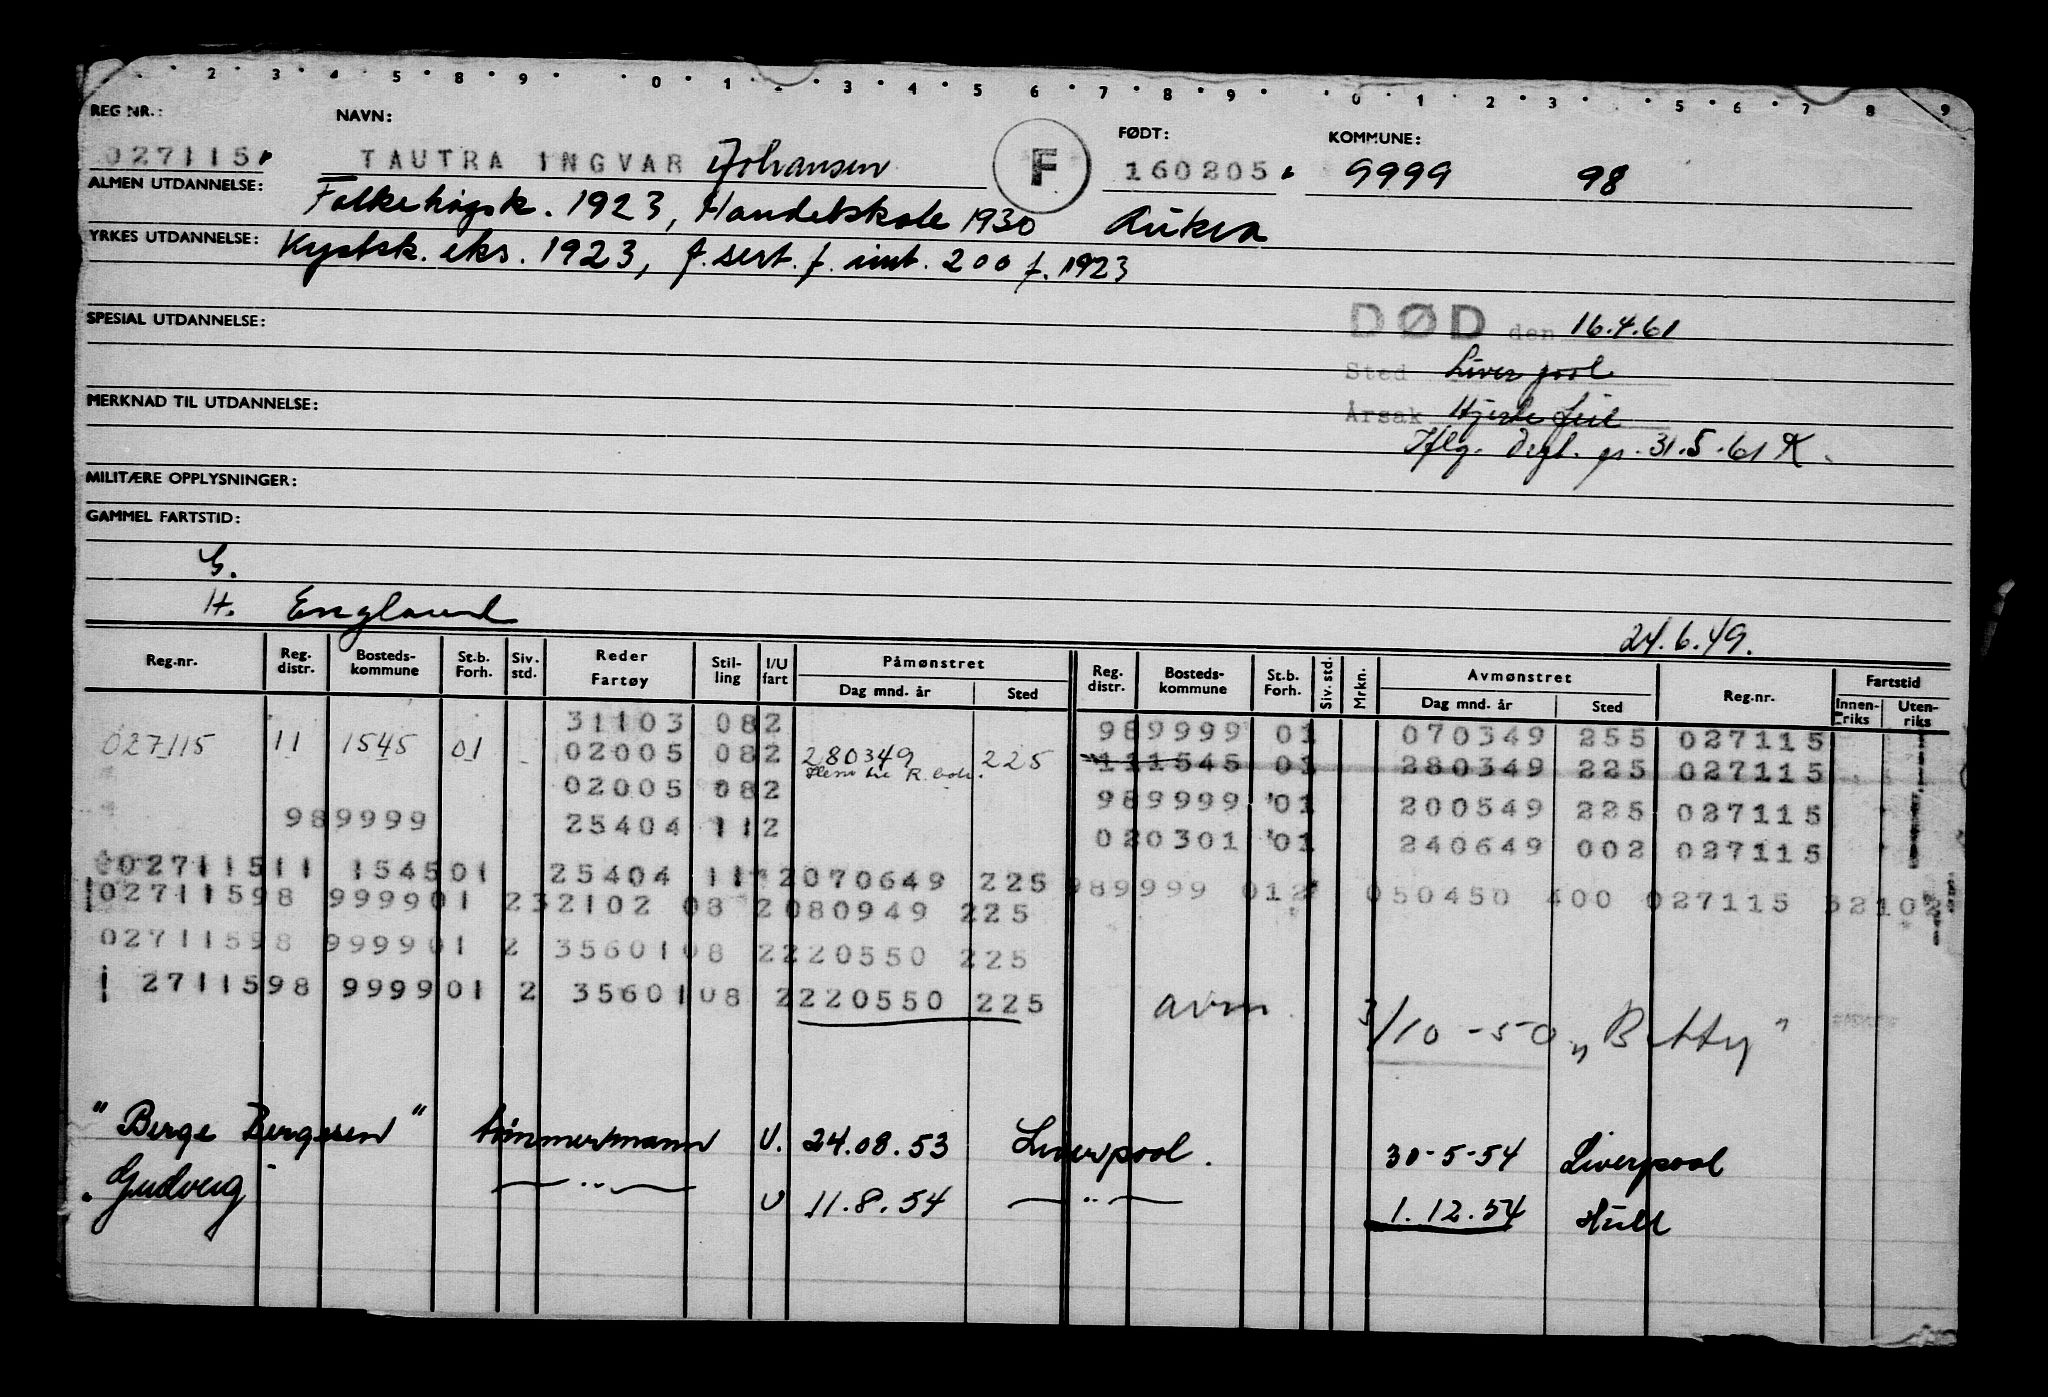 2 3 4 5 8 9 0 1 3 4 5 6 7 8 9 0 1 2 3 5 6 7 8 9
REG NR.: NAVN: FØDT: KOMMUNE:
027115 TAUTRA INGVAR Johansen F 160205 9999 98
ALMEN UTDANNELSE: Folkehögsk. 1923, Handelskole 1930 Aukra
YRKES UTDANNELSE: Kystsk. eks. 1923, f. sert. f. int. 200 f. 1923
SPESIAL UTDANNELSE: DØD den 16.4.61
Sted Liverpool
MERKNAD TIL UTDANNELSE: Årsak Hjertefeil
Iflg. 31.5.61 K.
MILITÆRE OPPLYSNINGER:
GAMMEL FARTSTID:
S.
H. England 24.6.49.
Reg.nr. Reg. distr. Bosteds-kommune St.b. Forh. Siv. std. Reder Fartøy Stil-ling I/U fart Påmønstret Dag mnd. år Sted Reg. distr. Bosteds-kommune St.b. Forh. Siv. std. Mrkn. Avmønstret Dag mnd. år Sted Reg.nr. Fartstid Innen-riks Uten-riks
31103 082 989999 01 070349 255 027115
027115 11 1545 01 02005 082 280349 225 111545 01 280349 225 027115
02005 082 989999 01 200549 225 027115
989999 25404 112 020301 01 240649 002 027115
027115 11 1545 01 25404 11 2 070649 225
027115 98 9999 01 2 32102 08 2 080949 225 989999 01 2 050450 400 027115 32102
027115 98 9999 01 2 35601 08 2 220550 225
27115 98 9999 01 2 35601 08 2 220550 225 avm. 3/10-50 "Betty"
"Berge Bergesen" tömmermann U. 24.08.53 Liverpool. 30-5-54 Liverpool
"Gudveig" —"— U 11.8.54 —"— 1.12.54 Hull